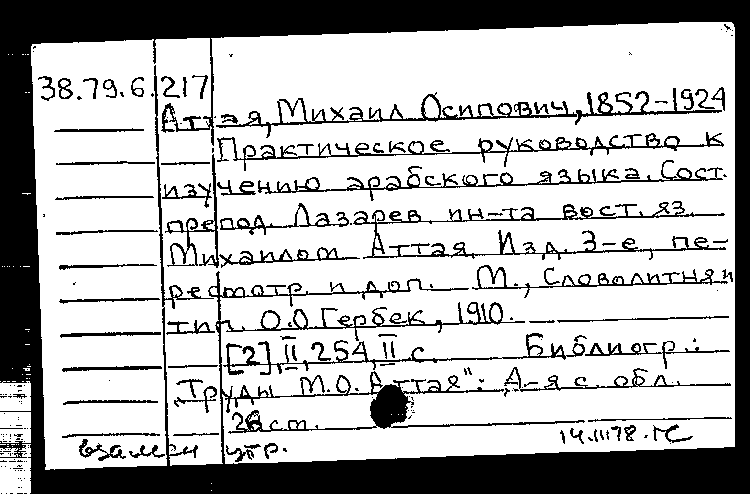 38.79.6.217
Аттая, Михаил Осипович, 1852-1924
Практическое руководство к
изучению арабского языка. Сост.
препод. Лазарев. ин-та вост. яз.
Михаилом Аттая. Изд. 3-е, пе-
ресмотр. и доп. М., Словолитня и
тип. О.О.Гербек, 1910.
[2], II, 254, II с. Библиогр.:
„Труды М.О. Аттая": 4-я с. обл.
ст.
взамен утр.